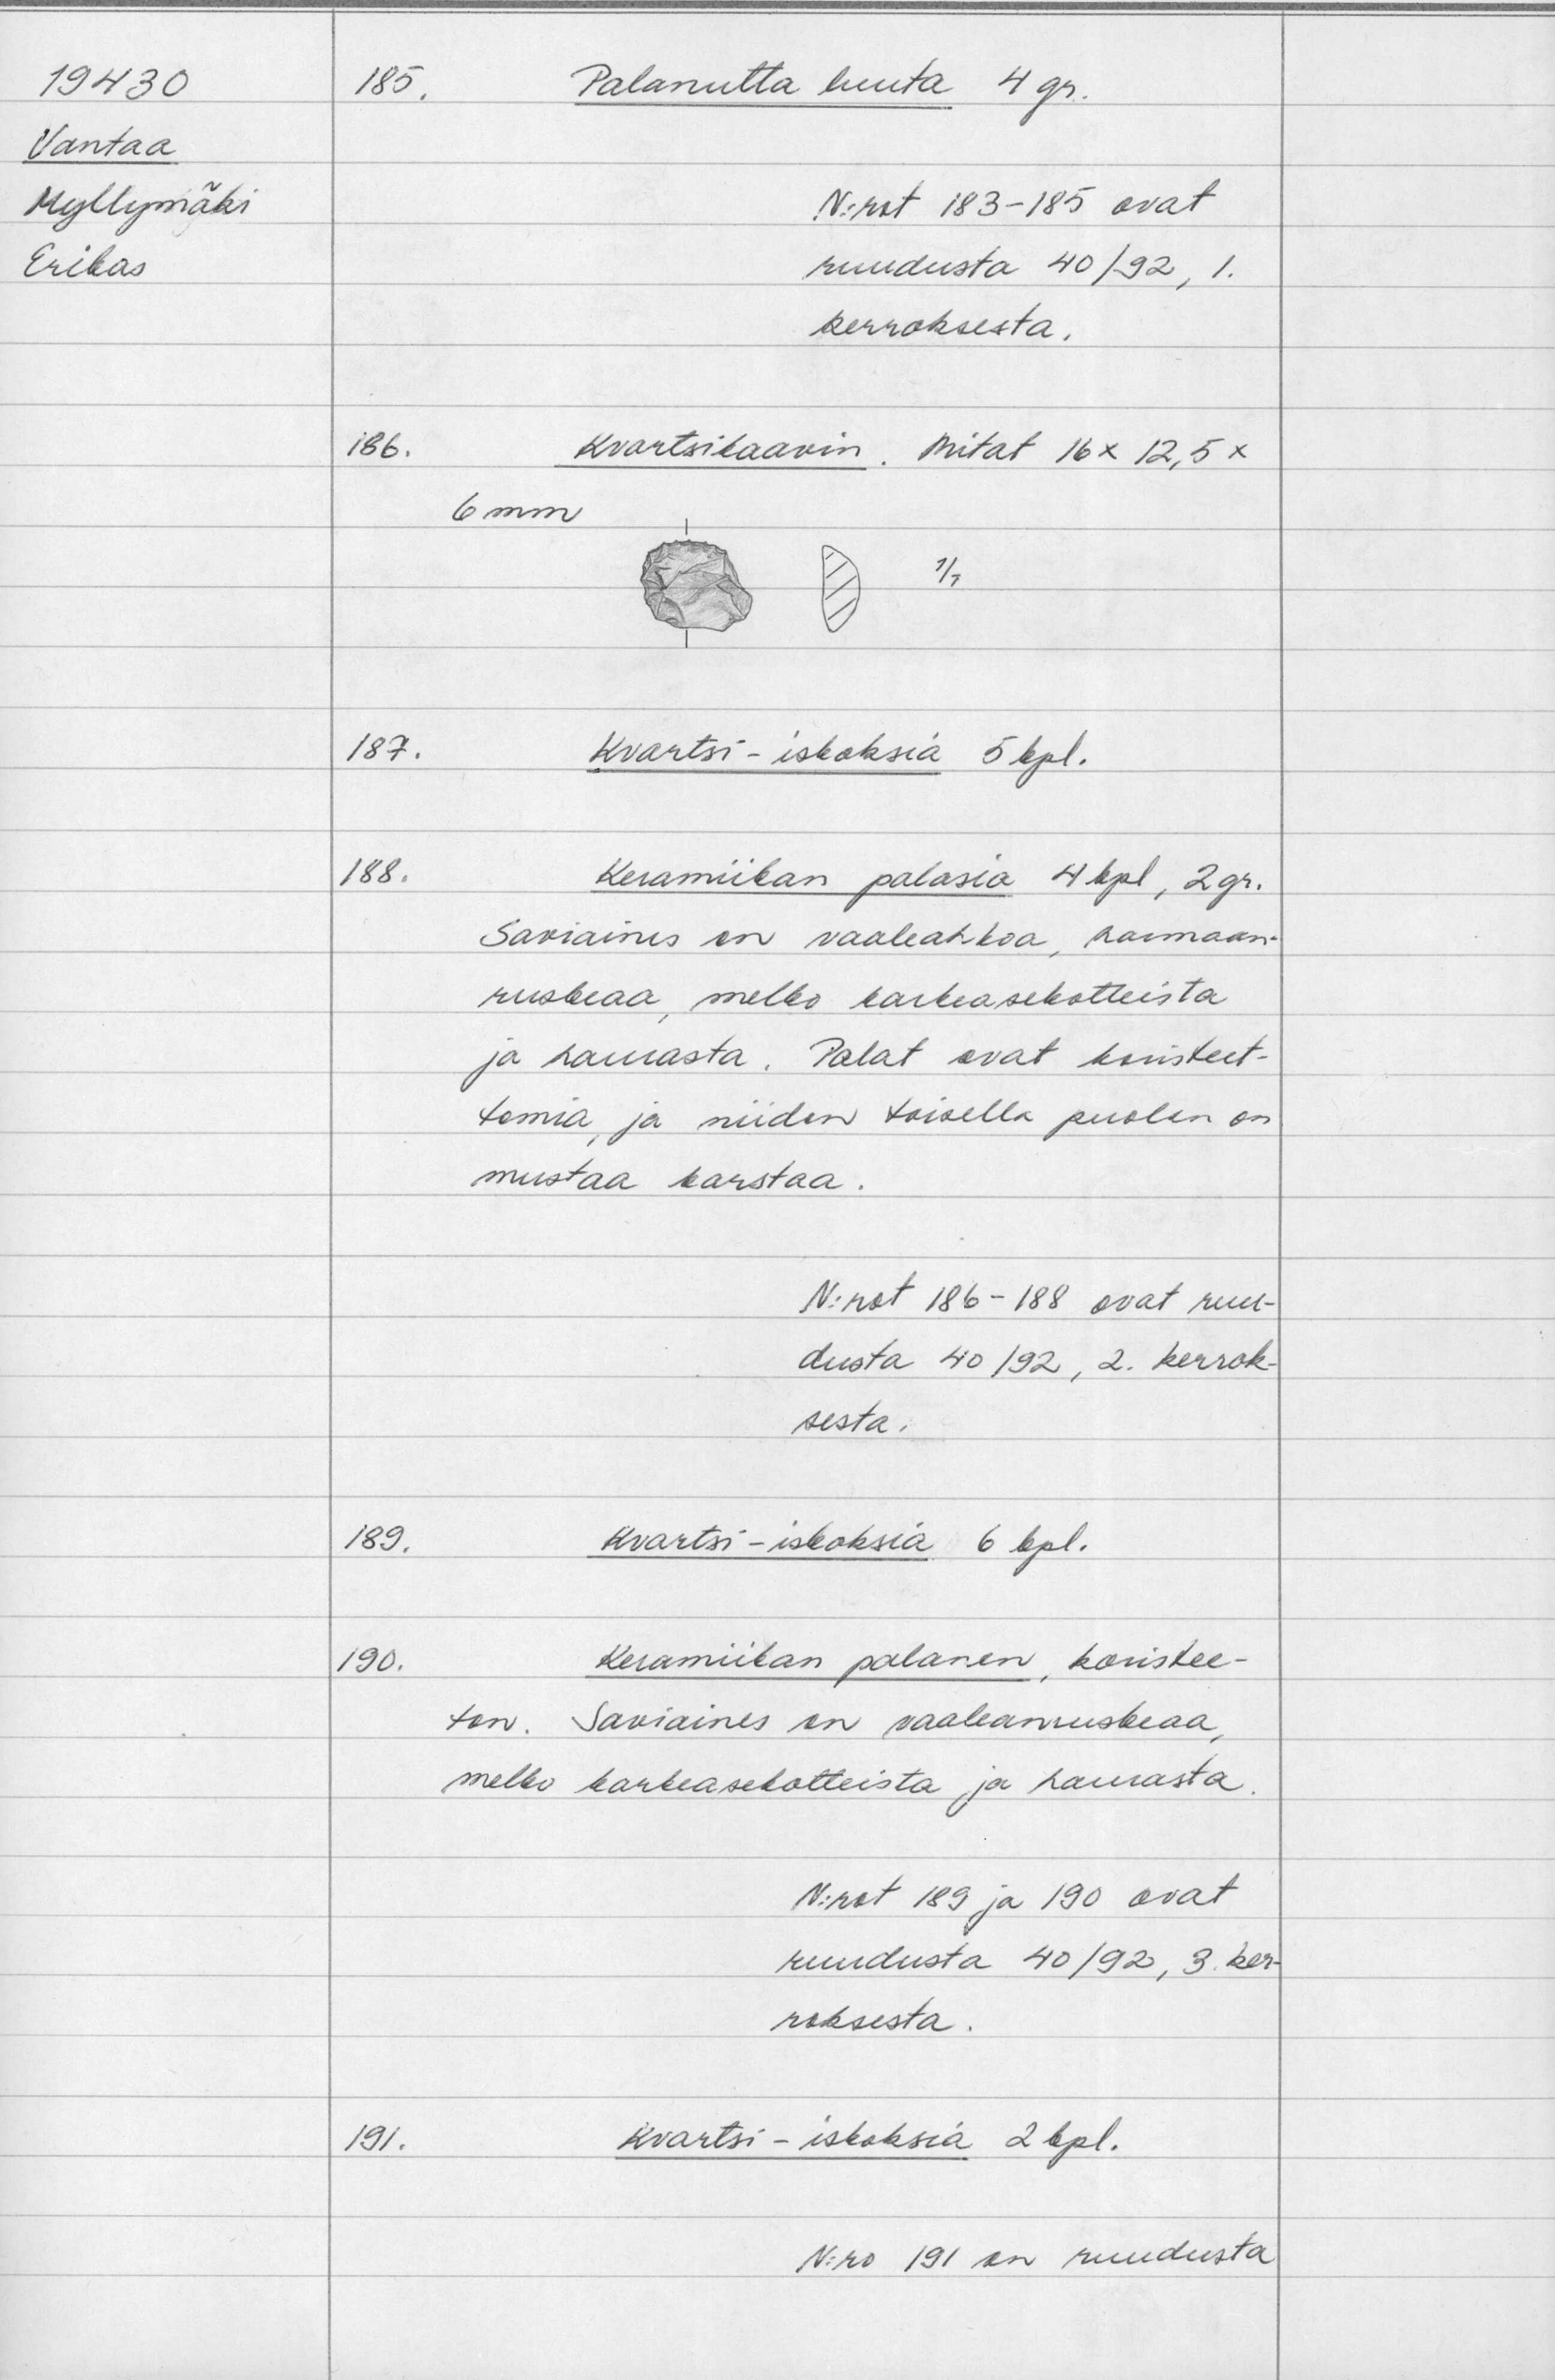 19430
Vantaa
Myllymäki
Erikas
185. Palanutta luuta 4 gr.
N:rot 183-185 ovat
ruudusta 40/92, 1.
kerroksesta.
186. Kvartsikaavin. Mitat 16 x 12,5 x
6 mm
1/1
187. Kvartsi-iskoksia 5 kpl.
188. Keramiikan palasia 4 kpl, 2 gr.
Saviaines on vaaleahkoa, harmaan-
ruskeaa, melko karkeasekotteista
ja haurasta. Palat ovat koristeet-
tomia, ja niiden toisella puolen on
mustaa karstaa.
N:rot 186-188 ovat ruu-
dusta 40/92, 2. kerrok-
sesta.
189. Kvartsi-iskoksia 6 kpl.
190. Keramiikan palanen, koristee-
ton. Saviaines on vaaleanruskeaa,
melko karkeasekotteista ja haurasta.
N:rot 189 ja 190 ovat
ruudusta 40/92, 3. ker-
roksesta.
191. Kvartsi-iskoksia 2 kpl.
N:ro 191 on ruudusta